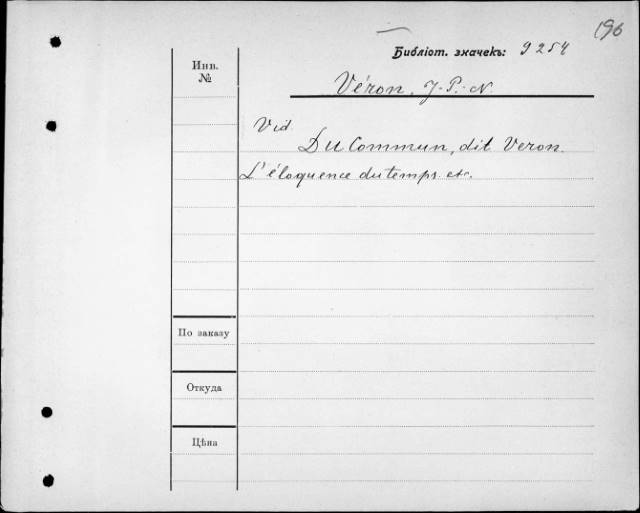 196
Библіот. значекъ: 9254
Инв.
№
Véron, J.-P.-N.
Vid.
Du Commun, dit Veron.
L'éloquence du temps. etc.
По заказу
Откуда
Цѣна